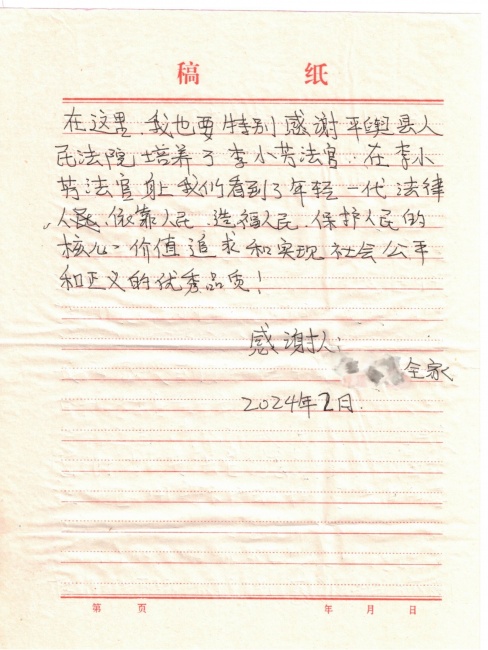 稿 纸
在这里 我也要特别感谢平舆县人
民法院培养了李小芳法官. 在李小
芳法官身上我们看到了年轻一代法律
人 依靠人民、造福人民、保护人民的
核心价值追求和实现社会公平
和正义的优秀品质！
感谢人：
全家
2024年2日.
第 页 年 月 日